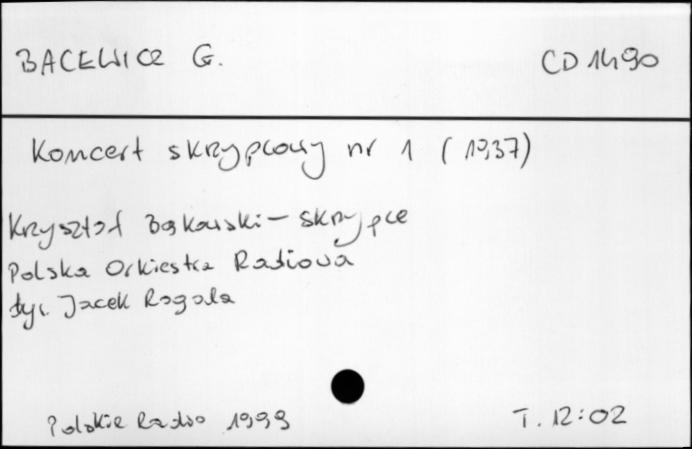 BACEWICZ G. CD 1490
Koncert skrzypcowy nr 1 (1937)
Krzysztof Bąkowski - skrzypce
Polska Orkiestra Radiowa
dyr. Jacek Rogala
Polskie Radio 1999 T. 12:02